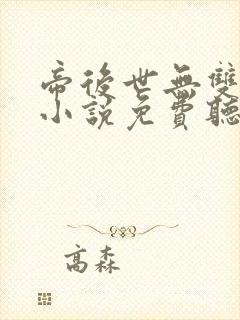 帝後世無雙
小說免費聽
高森